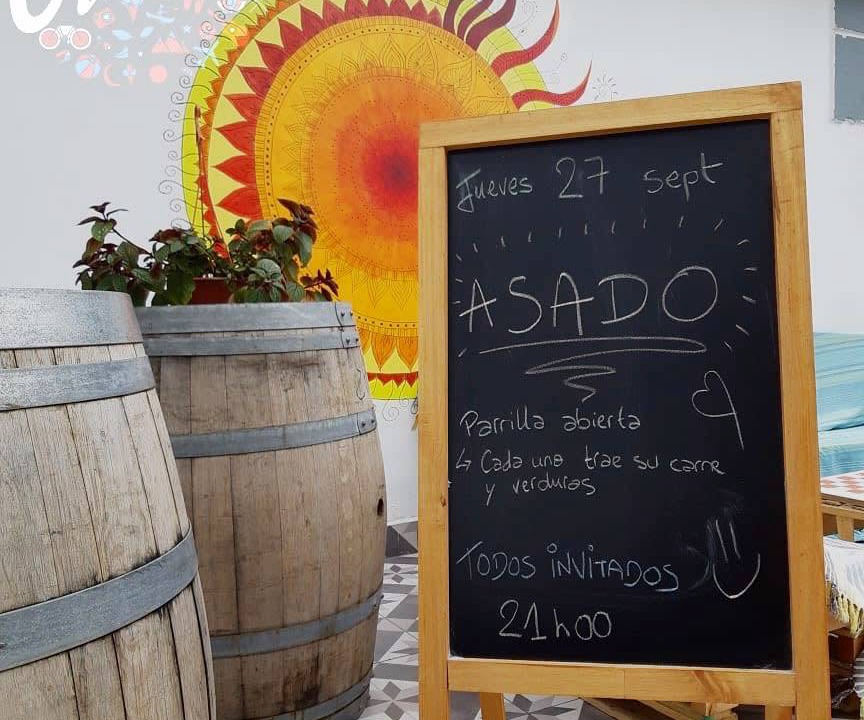 Jueves 27 sept
ASADO
Parrilla abierta
↳ Cada uno trae su carne
y verduras
TODOS INVITADOS
21h00